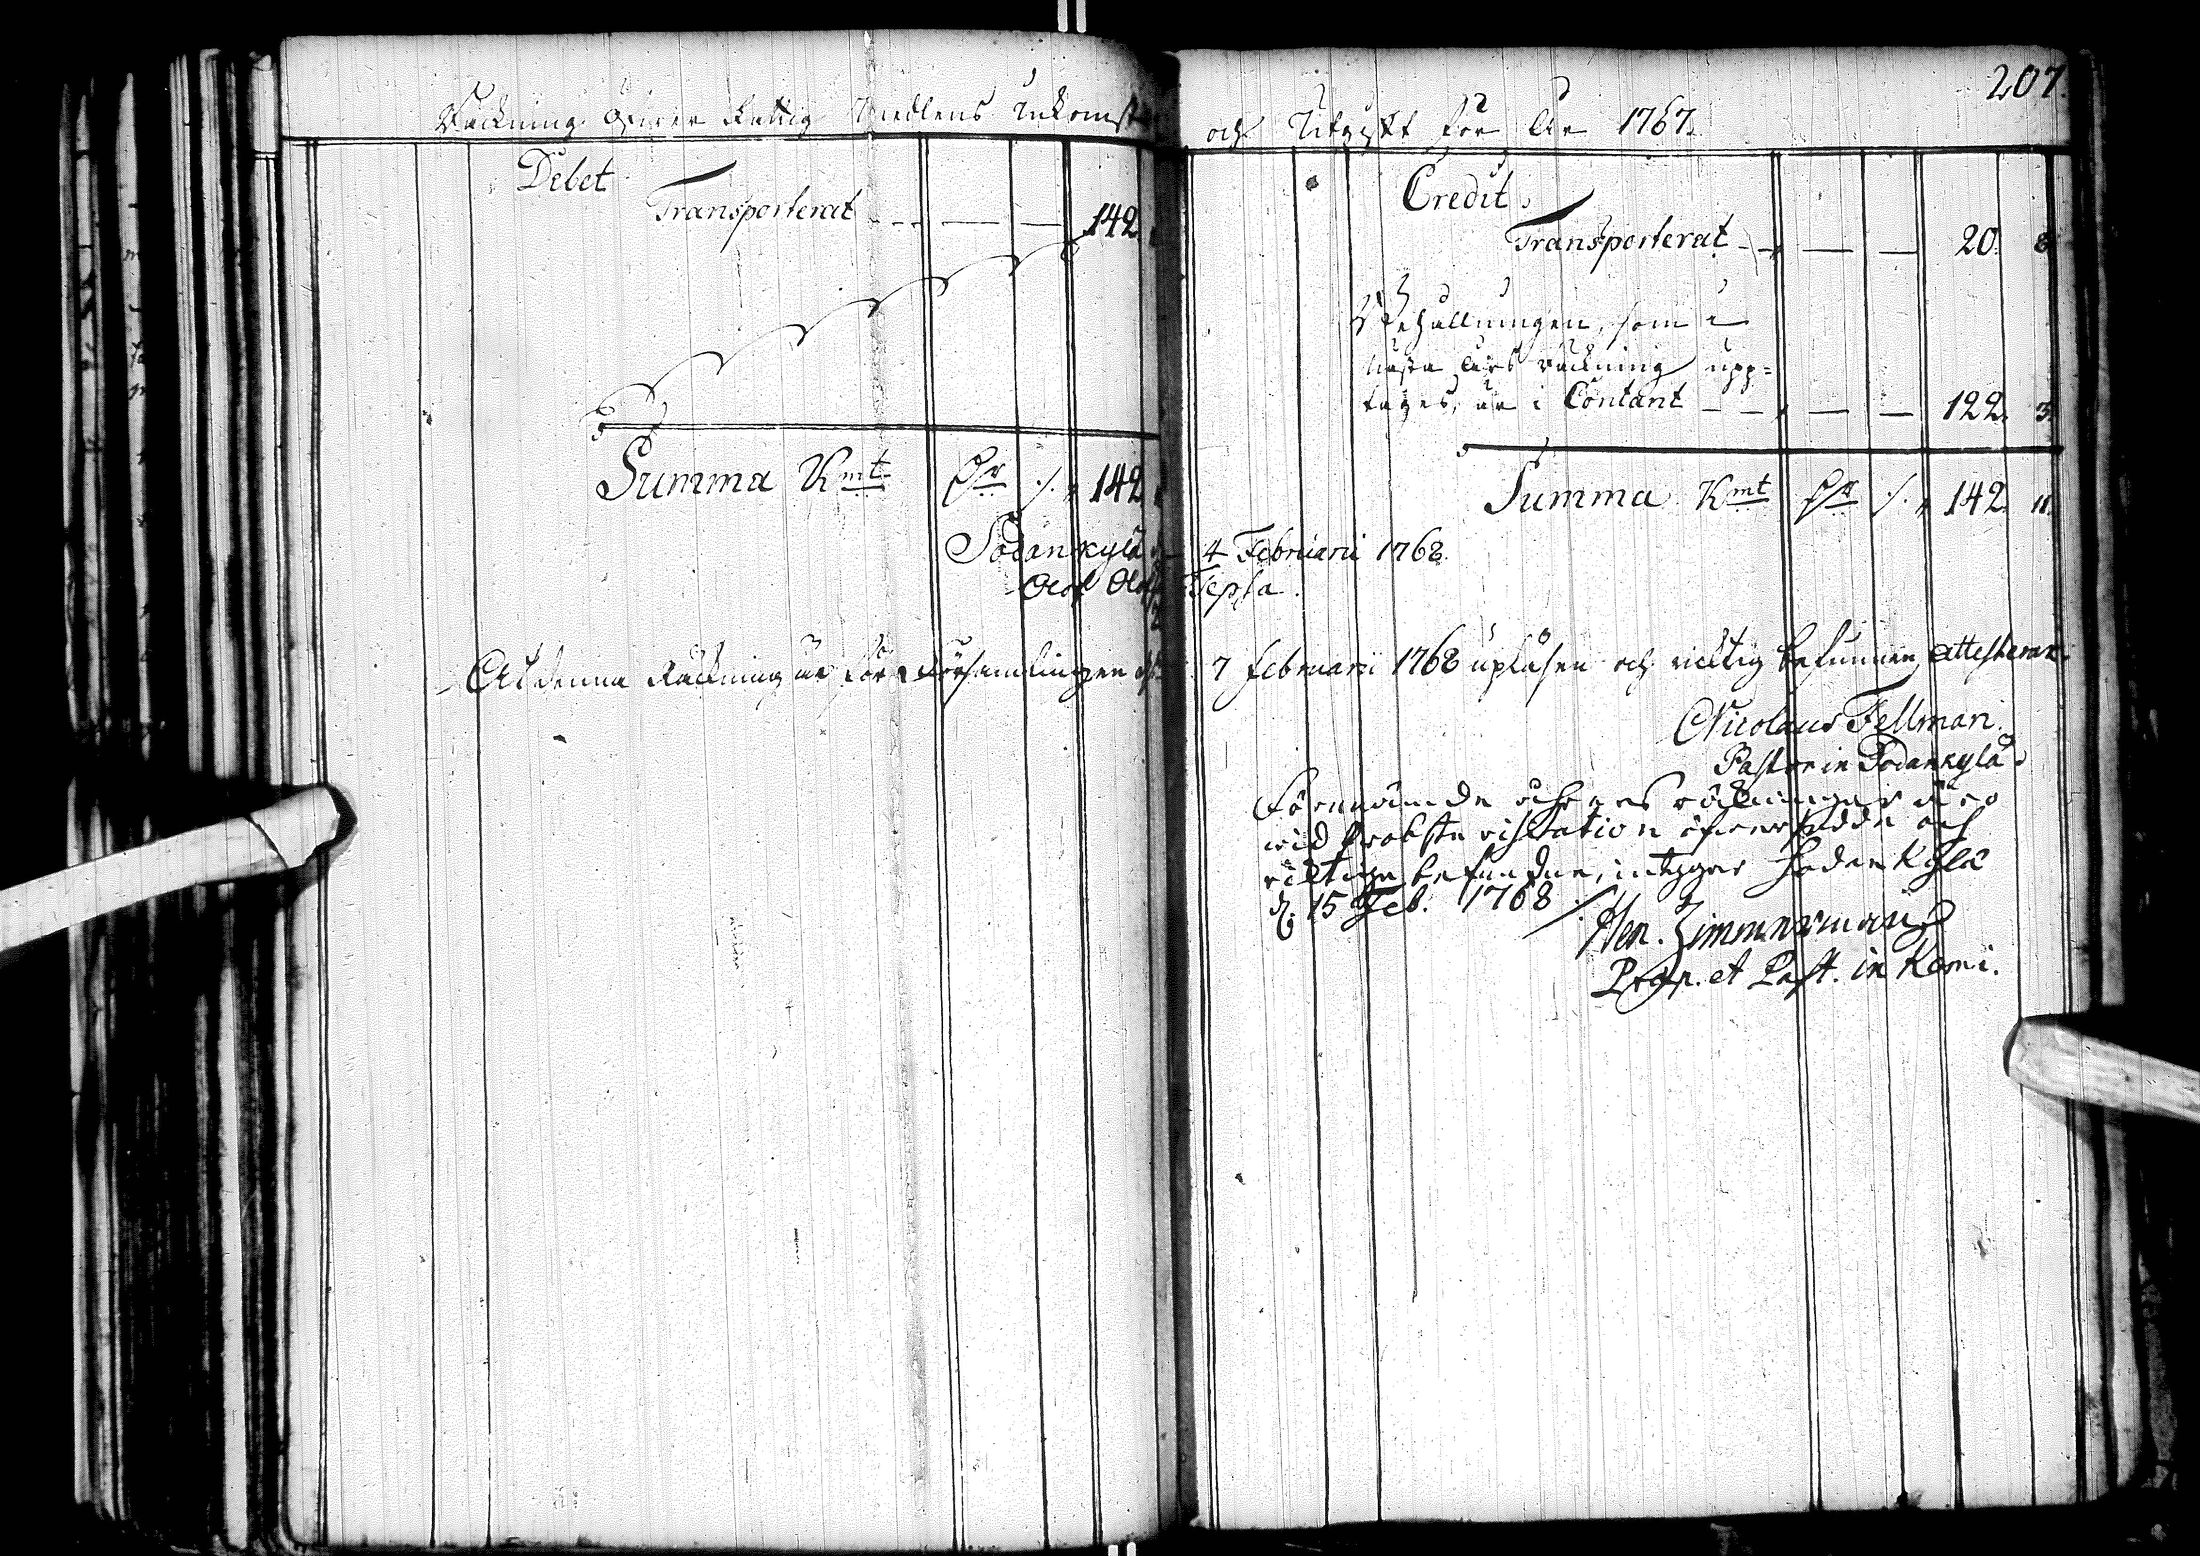 207.
Räckning öfwer Fattig Medlens Inkomst
och Utgift för År 1767.
Debet
Transporterat - - — — — 142.
Summa Kmt Dr ./. „ 142
Credit.
Transporterat - - „ — — 20. 8.
Behållningen, som i
nästa Års räckning upp=
tages, är i Contant - - „ — — 122. 3.
Summa Kmt Dr ./. „ 142. 11.
Sodankylä 4 Februarii 1768.
Olof Olofs Tepsa.
At denna Räckning är för Församlingen d. 7 Februarii 1768 upläsen och richtig befunnen, attesterar
Nicolaus Fellman.
Pastor in Sodankylä.
Förenämde åhrges räkningar äro
wid Probste visitation öfwersedde och
richtige befundne, intygar Sodankylä
d. 15 Feb. 1768 ./.
Hen. Zimmerman
Præp. et Past. in Kemi.